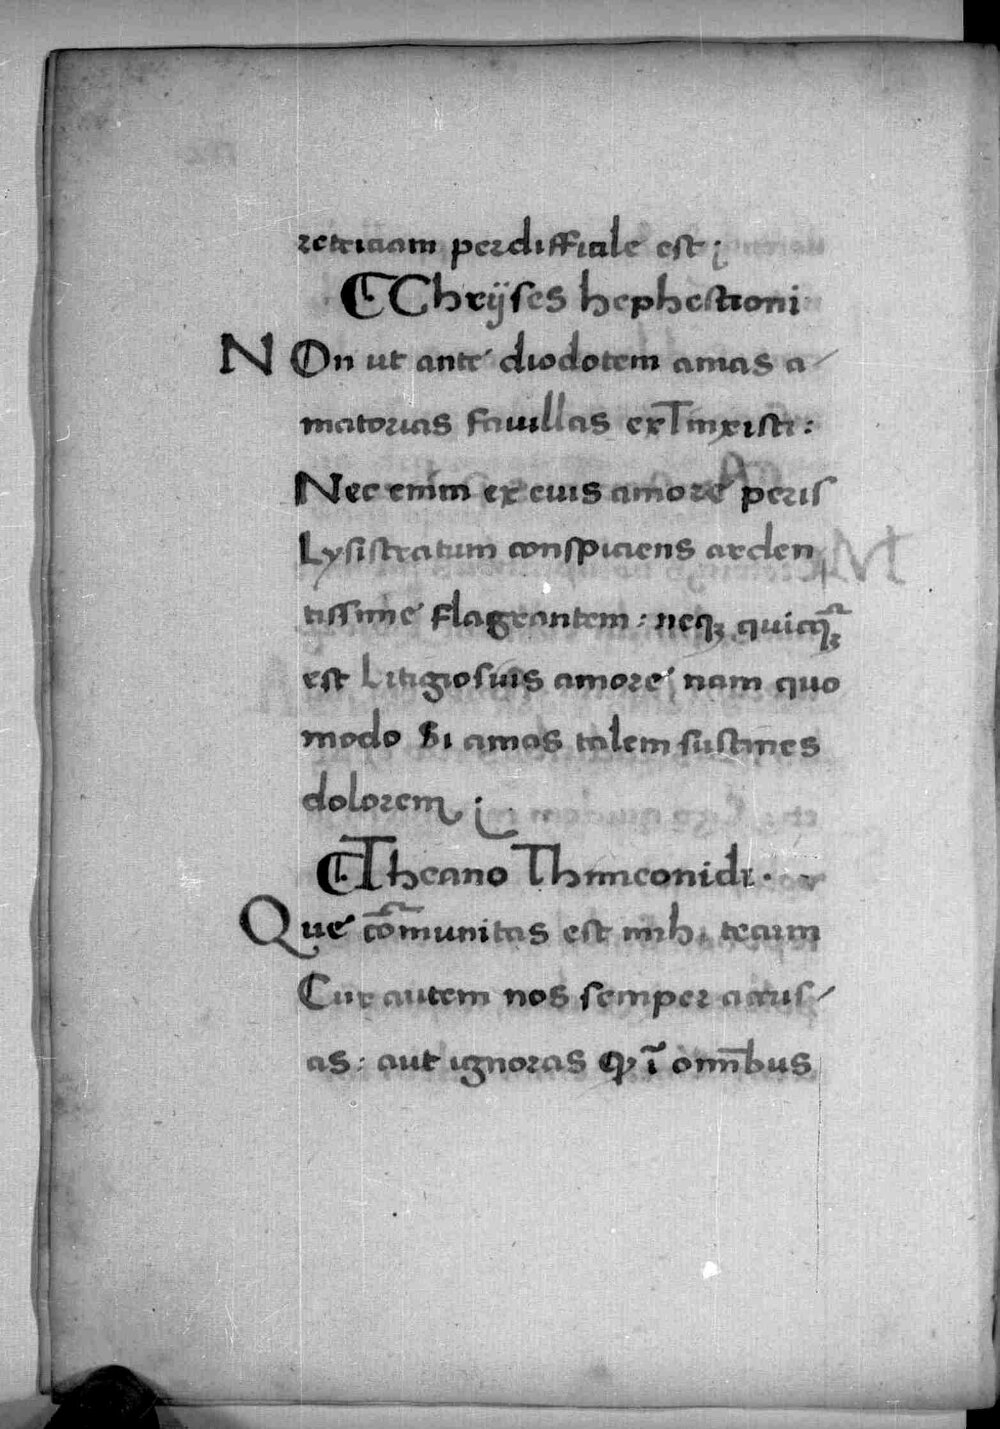 retriciam perdifficile est ;
Chrÿses hephestioni
NOn ut ante diodotem amas a/
matorias fauillas exTinxisti :
Nec enim ex euis amore peris
Lysistratum conspiciens arden
tissime flagrantem : neqꝫ quicq̃ꝫ
est Litigiosuis amore nam quo
modo Si amas talem sustines
dolorem ;
Theano Thimeonidi .
Que cõmunitas est mihi tecum
Cur autem nos semper accus/
as : aut ignoras ꝙ ĩ omn̄bus